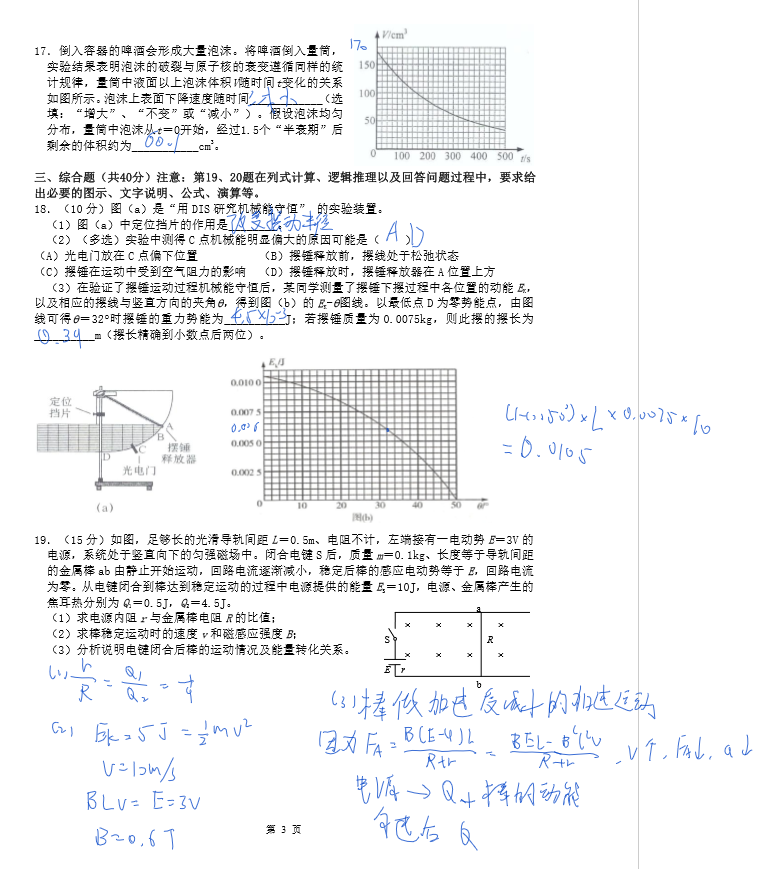 17. 倒入容器的啤酒会形成大量泡沫。将啤酒倒入量筒，
实验结果表明泡沫的破裂与原子核的衰变遵循同样的统
计规律，量筒中液面以上泡沫体积V随时间t变化的关系
如图所示。泡沫上表面下降速度随时间__________（选
填：“增大”、“不变”或“减小”）。假设泡沫均匀
分布，量筒中泡沫从t＝0开始，经过1.5个“半衰期”后
剩余的体积约为__________cm³。
170
V/cm³
150
100
50
0 100 200 300 400 500 t/s
三、综合题（共40分）注意：第19、20题在列式计算、逻辑推理以及回答问题过程中，要求给
出必要的图示、文字说明、公式、演算等。
18. （10分）图（a）是“用DIS研究机械能守恒” 的实验装置。
（1）图（a）中定位挡片的作用是
（2）（多选）实验中测得C点机械能明显偏大的原因可能是（ AD ）
（A）光电门放在C点偏下位置 （B）摆锤释放前，摆线处于松弛状态
（C）摆锤在运动中受到空气阻力的影响 （D）摆锤释放时，摆锤释放器在A位置上方
（3）在验证了摆锤运动过程机械能守恒后，某同学测量了摆锤下摆过程中各位置的动能Eₖ，
以及相应的摆线与竖直方向的夹角θ，得到图（b）的Eₖ-θ图线。以最低点D为零势能点，由图
线可得θ＝32°时摆锤的重力势能为 4.5×10⁻³ J；若摆锤质量为0.0075kg，则此摆的摆长为
0.39 m（摆长精确到小数点后两位）。
定位
挡片
A
B
C
D
摆锤
释放器
光电门
（a）
Eₖ/J
0.010 0
0.007 5
0.006
0.005 0
0.002 5
0 10 20 30 40 50 θ/°
图(b)
(1-cos50°)×L×0.0075×10
=0.0105
19. （15分）如图，足够长的光滑导轨间距L＝0.5m、电阻不计，左端接有一电动势E＝3V的
电源，系统处于竖直向下的匀强磁场中。闭合电键S后，质量m＝0.1kg、长度等于导轨间距
的金属棒ab由静止开始运动，回路电流逐渐减小，稳定后棒的感应电动势等于E，回路电流
为零。从电键闭合到棒达到稳定运动的过程中电源提供的能量E₁＝10J，电源、金属棒产生的
焦耳热分别为Q₁＝0.5J，Q₂＝4.5J。
（1）求电源内阻r与金属棒电阻R的比值；
（2）求棒稳定运动时的速度v和磁感应强度B；
（3）分析说明电键闭合后棒的运动情况及能量转化关系。
a
S
R
E r
b
(1) r/R = Q₁/Q₂ = 1/9
(2) Ek=5J=½mv²
v=10m/s
BLv=E=3V
B=0.6T
(3)棒做加速度减小的加速运动
因为 F_A = B(E-U)L/(R+r) = (BEL-B²L²v)/(R+r)，v↑，F_A↓，a↓
电源→Q+棒的动能
第 3 页